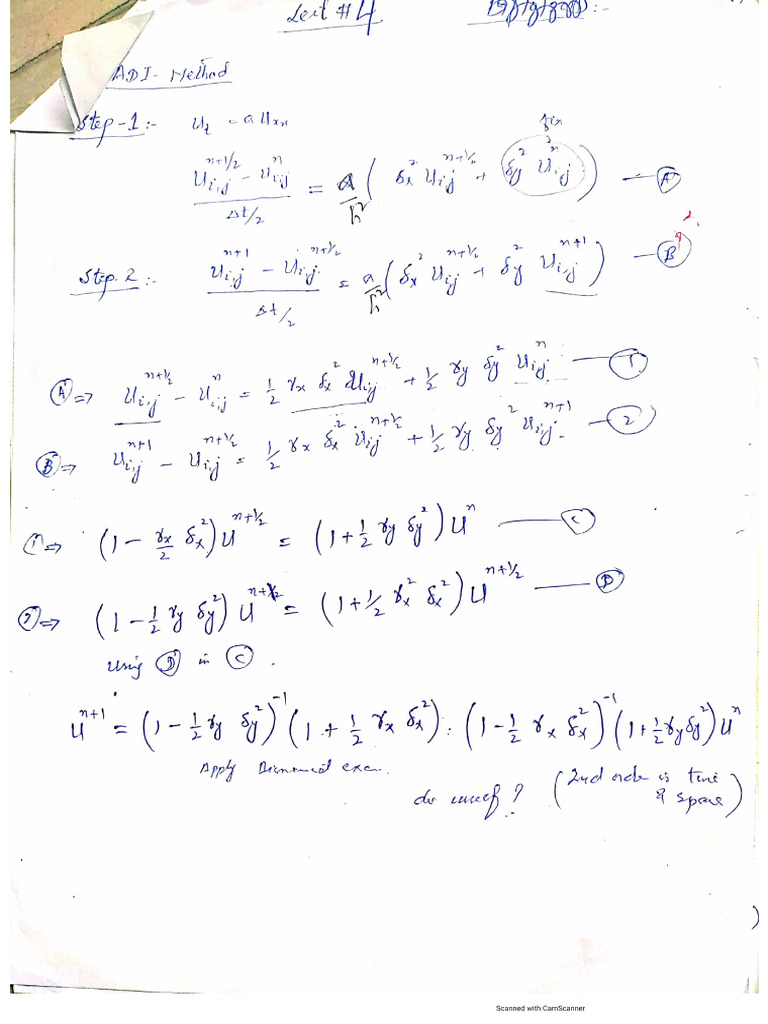 Lect #4
ADI-Method
Step-1:- u_t = a u_xx
(u_{i,j}^{n+1/2} - u_{i,j}^n)/(Δt/2) = a/h² (δ_x² u_{i,j}^{n+1/2} + δ_y² u_{i,j}^n) — (A)
Step 2:- (u_{i,j}^{n+1} - u_{i,j}^{n+1/2})/(Δt/2) = a/h² (δ_x² u_{i,j}^{n+1/2} + δ_y² u_{i,j}^{n+1}) — (B)
(A) => u_{i,j}^{n+1/2} - u_{i,j}^n = 1/2 γ_x δ_x² u_{i,j}^{n+1/2} + 1/2 γ_y δ_y² u_{i,j}^n — (1)
(B) => u_{i,j}^{n+1} - u_{i,j}^{n+1/2} = 1/2 γ_x δ_x² u_{i,j}^{n+1/2} + 1/2 γ_y δ_y² u_{i,j}^{n+1} — (2)
(1) => (1 - γ_x/2 δ_x²) u^{n+1/2} = (1 + 1/2 γ_y δ_y²) u^n — (C)
(2) => (1 - 1/2 γ_y δ_y²) u = (1 + 1/2 γ_x² δ_x²) u^{n+1/2} — (D)
using (D) in (C).
u^{n+1} = (1 - 1/2 γ_y δ_y²)^{-1} (1 + 1/2 γ_x δ_x²) . (1 - 1/2 γ_x δ_x²)^{-1} (1 + 1/2 γ_y δ_y²) u^n
Apply
? (2nd order is time
& space)
Scanned with CamScanner